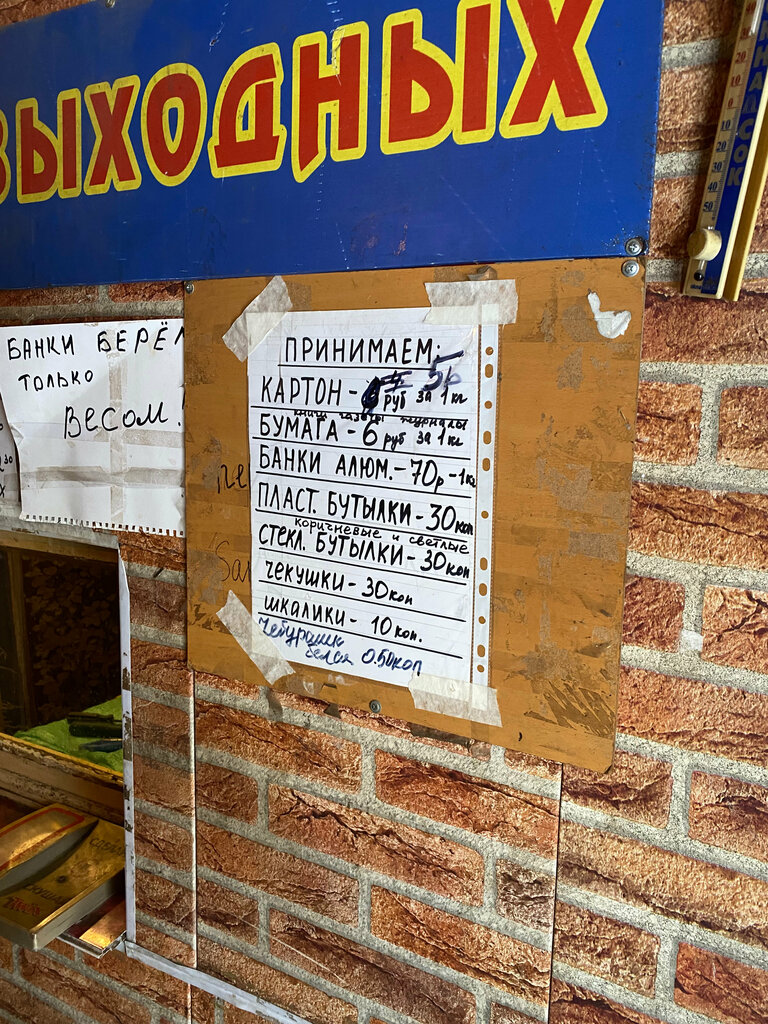 ВЫХОДНЫХ
БАНКИ БЕРЁМ
ТОЛЬКО
ВЕСОМ!
ПРИНИМАЕМ:
КАРТОН - 5р руб за 1 кг
книги газеты журналы
БУМАГА - 6 руб за 1 кг
БАНКИ АЛЮМ. - 70р - 1кг
ПЛАСТ. БУТЫЛКИ - 30 коп
коричневые и светлые
СТЕКЛ. БУТЫЛКИ - 30 коп
ЧЕКУШКИ - 30 коп
ШКАЛИКИ - 10 коп.
Чебурашк
белая 0.50 коп
20
10
0
10
20
30
40
50